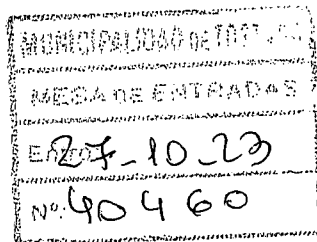 MUNICIPALIDAD DE
MESA DE ENTRADAS
Entró: 27-10-23
Nº: 40460